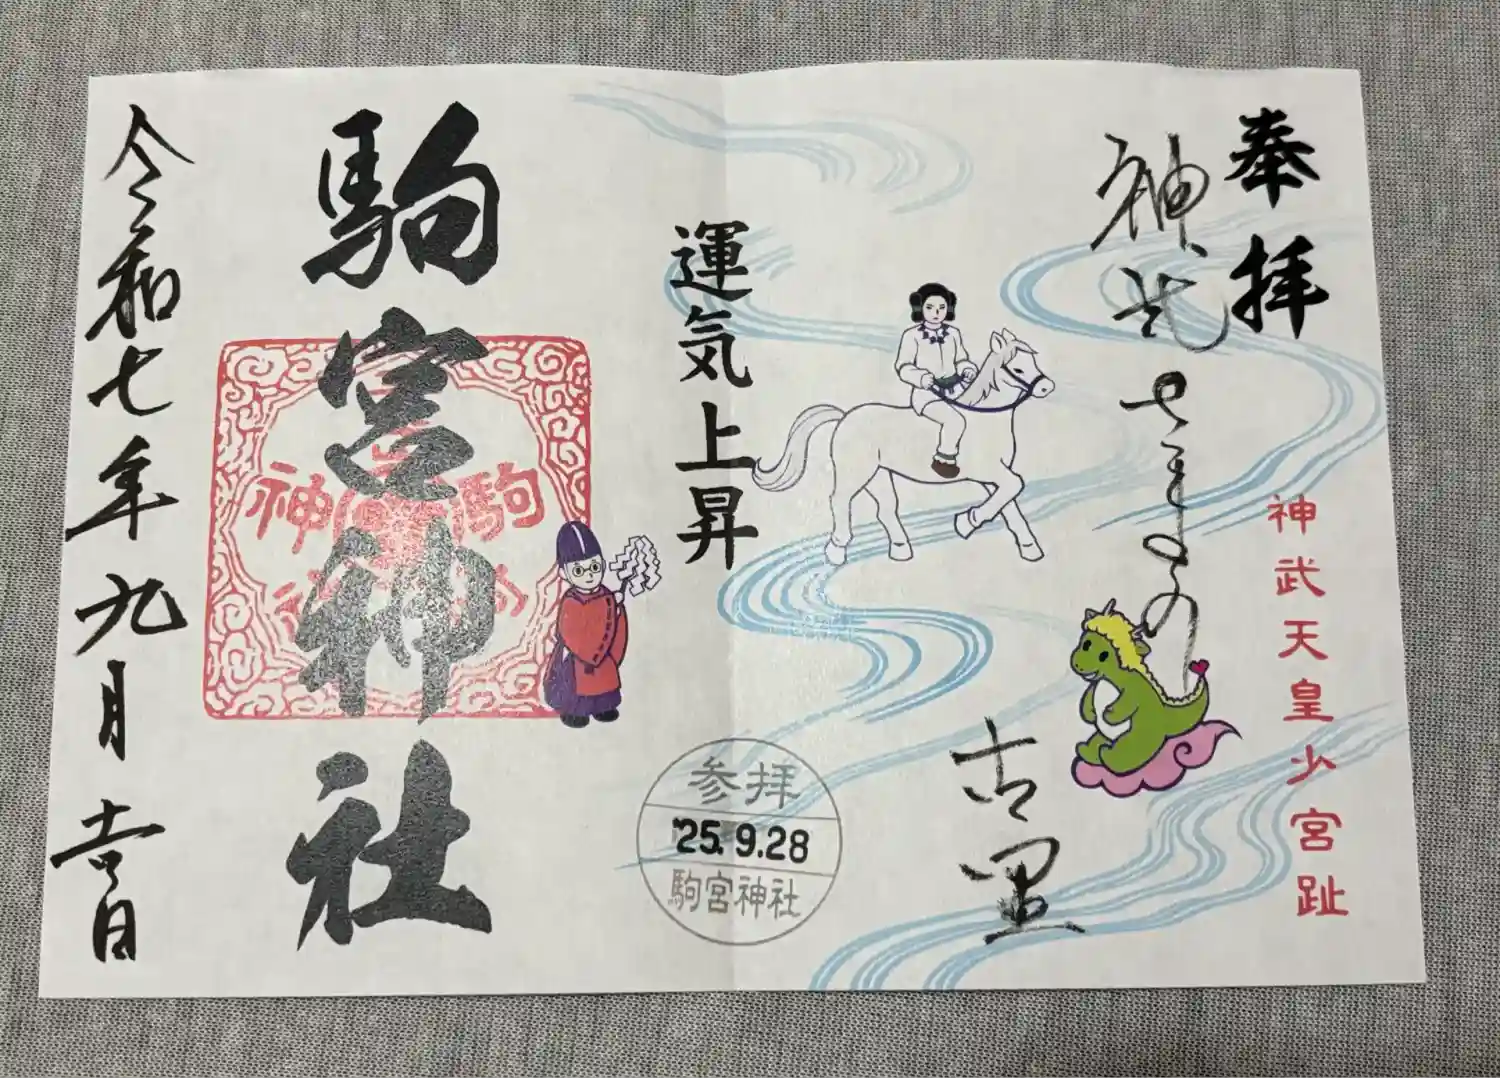 奉拝
神武さまの
古里
神武天皇少宮趾
運気上昇
参拝
'25.9.28
駒宮神社
駒宮神社
令和七年九月吉日